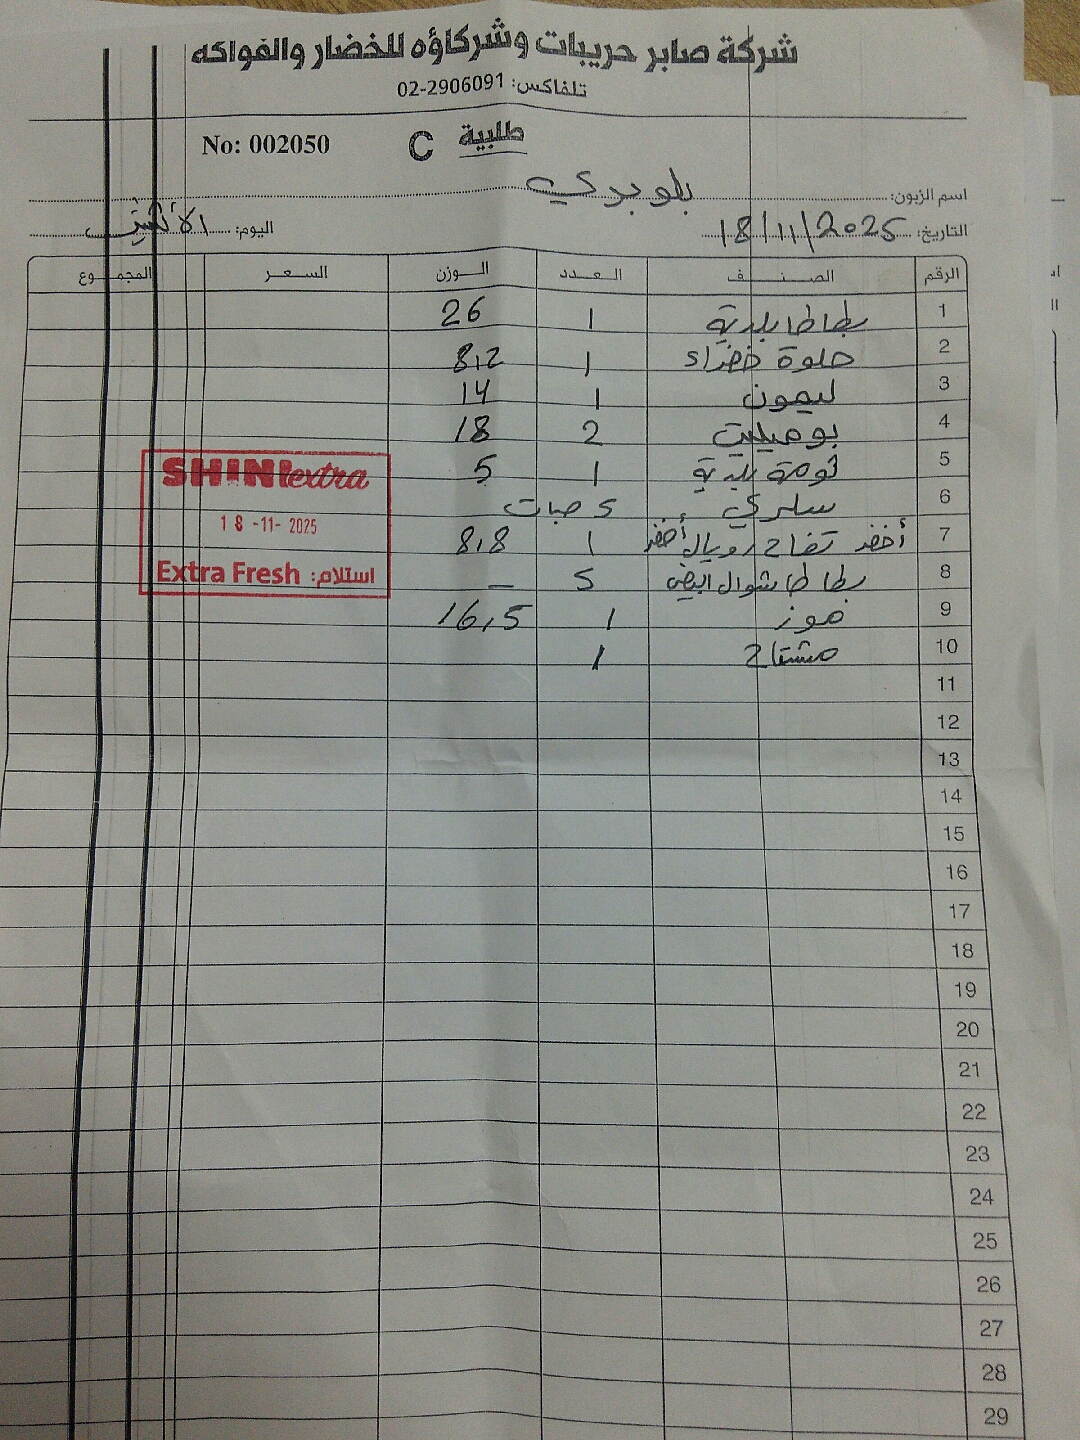 شركة صابر حريبات وشركاؤه للخضار والفواكه
تلفاكس: 02-2906091
طلبية C No: 002050
اسم الزبون:
التاريخ: 18/11/2025 اليوم: الأثنين
الرقم الصنف العدد الوزن السعر المجموع
1 بطاطا بلدية 1 26
2 حلوة خضراء 1 8,2
3 ليمون 1 14
4 بوميليت 2 18
5 ثومة بلدية 1 5
6 سلري 5 حبات
7 أخضر تفاح رويال أخضر 1 8,8
8 بطاطا شوال ابيض 5 –
9 موز 1 16,5
10 مشتاح 1
11
12
13
14
15
16
17
18
19
20
21
22
23
24
25
26
27
28
29
SHINI extra
18 -11- 2025
Extra Fresh استلام: